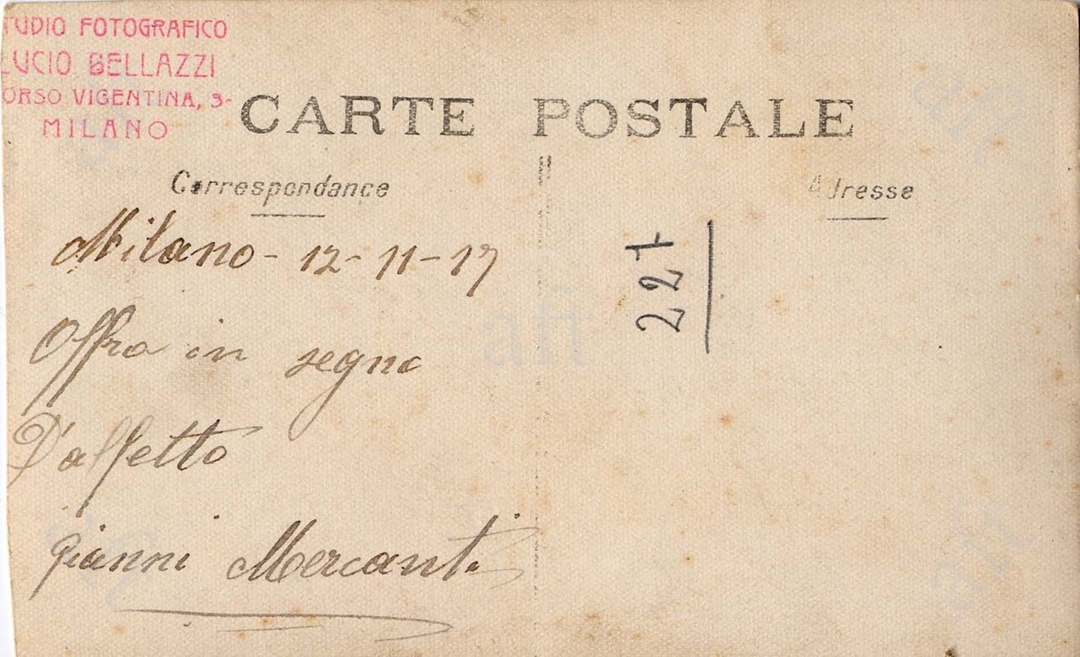 STUDIO FOTOGRAFICO
LUCIO BELLAZZI
CORSO VIGENTINA, 3-
MILANO
CARTE POSTALE
Correspondance
Adresse
Milano - 12-11-17
Offro in segno
D'affetto
Gianni Mercanti
227